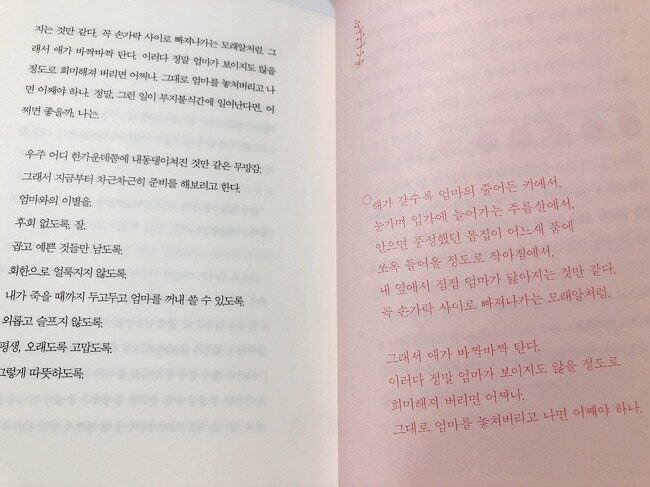 지는 것만 같다. 꼭 손가락 사이로 빠져나가는 모래알처럼. 그
래서 애가 바짝바짝 탄다. 이러다 정말 엄마가 보이지도 않을
정도로 희미해져 버리면 어쩌나. 그대로 엄마를 놓쳐버리고 나
면 어째야 하나. 정말, 그런 일이 부지불식간에 일어난다면, 어
쩌면 좋을까, 나는.
우주 어디 한가운데쯤에 내동댕이쳐진 것만 같은 무망감.
그래서 지금부터 차근차근히 준비를 해보려고 한다.
엄마와의 이별을.
후회 없도록, 잘.
곱고 예쁜 것들만 남도록.
회한으로 얼룩지지 않도록.
내가 죽을 때까지 두고두고 엄마를 꺼내 쓸 수 있도록.
외롭고 슬프지 않도록.
평생, 오래도록 고맙도록.
그렇게 따뜻하도록.
해가 갈수록 엄마의 줄어든 키에서,
눈가며 입가에 늘어가는 주름살에서,
안으면 풍성했던 몸집이 어느새 품에
쏘옥 들어올 정도로 작아짐에서,
내 옆에서 점점 엄마가 닳아지는 것만 같다.
꼭 손가락 사이로 빠져나가는 모래알처럼.
그래서 애가 바짝바짝 탄다.
이러다 정말 엄마가 보이지도 않을 정도로
희미해져 버리면 어쩌나.
그대로 엄마를 놓쳐버리고 나면 어째야 하나.